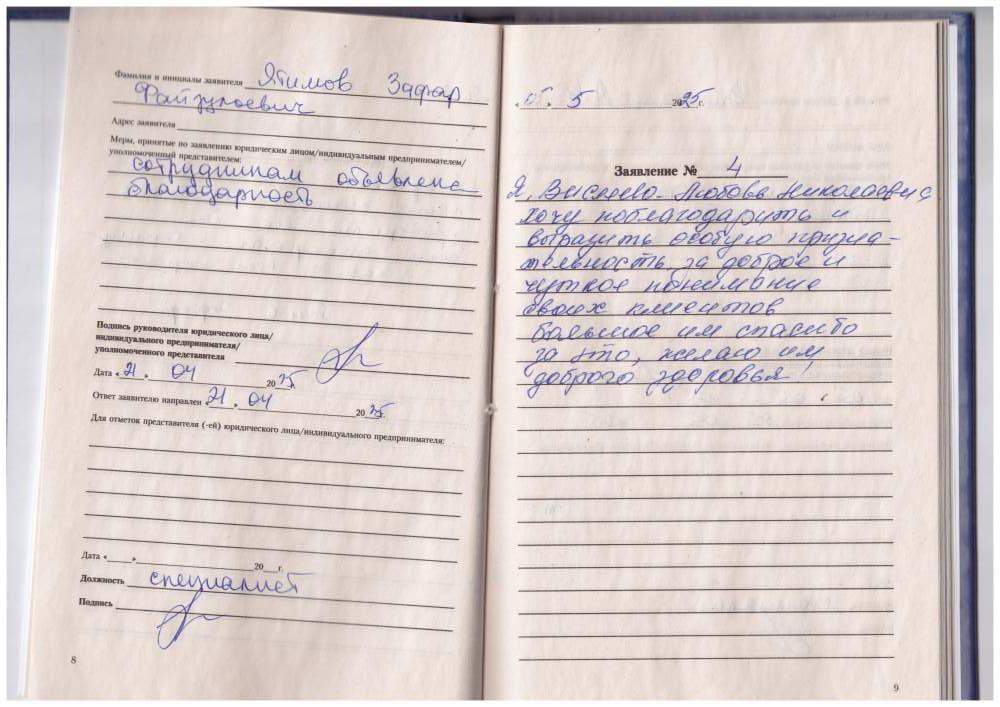 Фамилия и инициалы заявителя Ятимов Зафар
Файзулоевич
Адрес заявителя
Меры, принятые по заявлению юридическим лицом/индивидуальным предпринимателем/
уполномоченный представителем:
сотрудникам объявлена
благодарность
Подпись руководителя юридического лица/
индивидуального предпринимателя/
уполномоченного представителя
Дата «21» 04 2025г.
Ответ заявителю направлен «21» 04 2025г.
Для отметок представителя (-ей) юридического лица/индивидуального предпринимателя:
Дата «____»____ 20__г.
Должность специалист
Подпись
8
«05» 5 2025г.
Заявление № 4
Я, Любовь Николаевна
хочу поблагодарить и
выразить особую призна-
тельность за доброе и
чуткое понимание
своих клиентов
большое им спасибо
за это, желаю им
доброго здоровья!
9